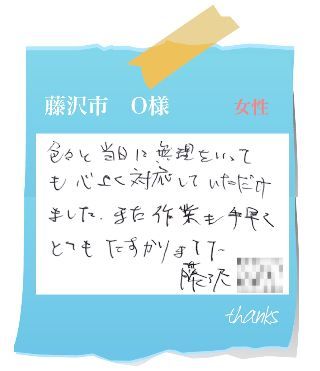 藤沢市　O様　女性
色々と当日に無理をいって
も心よく対応していただけ
ました。また作業も手早く
とてもたすかりました
藤沢
thanks